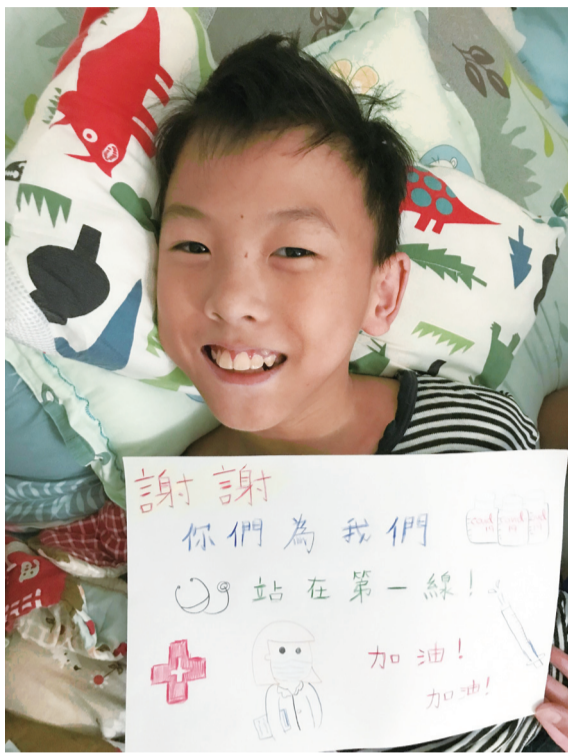 謝謝
你們為我們
站在第一線!
加油!
加油!